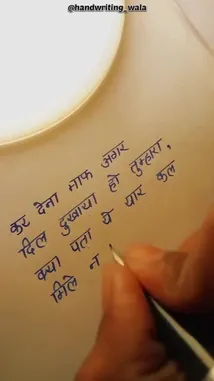 @handwriting_wala
कर देना माफ अगर
दिल दुखाया हो तुम्हारा,
क्या पता ये यार कल
मिले न